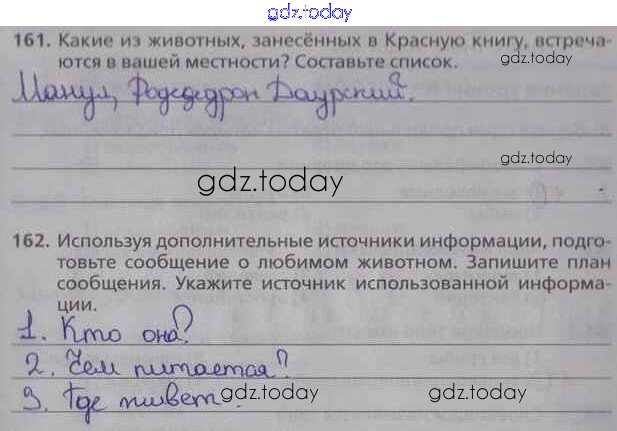 gdz.today
161. Какие из животных, занесённых в Красную книгу, встреча-
ются в вашей местности? Составьте список.
gdz.today
Манул, Рододедрон Даурский.
gdz.today
gdz.today
162. Используя дополнительные источники информации, подго-
товьте сообщение о любимом животном. Запишите план
сообщения. Укажите источник использованной информа-
ции.
1. Кто она?
2. Чем питается?
3. Где живет?
gdz.today
gdz.today